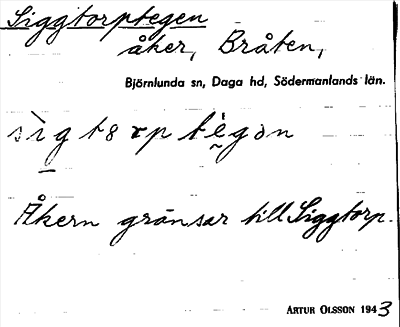 Siggtorptegen
åker, Bråten,
Björnlunda sn, Daga hd, Södermanlands län.
sìgt8rp tègən
Åkern gränsar till Siggtorp.
ARTUR OLSSON 1943